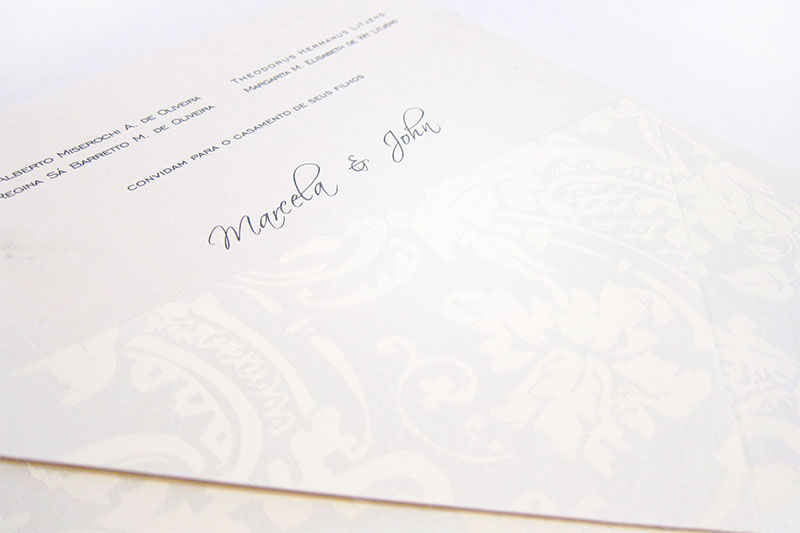 ALBERTO MISEROCHI A. DE OLIVEIRA
REGINA SÁ BARRETTO M. DE OLIVEIRA
THEODORUS HERMANUS LITJENS
MARGARITA M. ELISABETH DE WIT LITJENS
CONVIDAM PARA O CASAMENTO DE SEUS FILHOS
Marcela & John